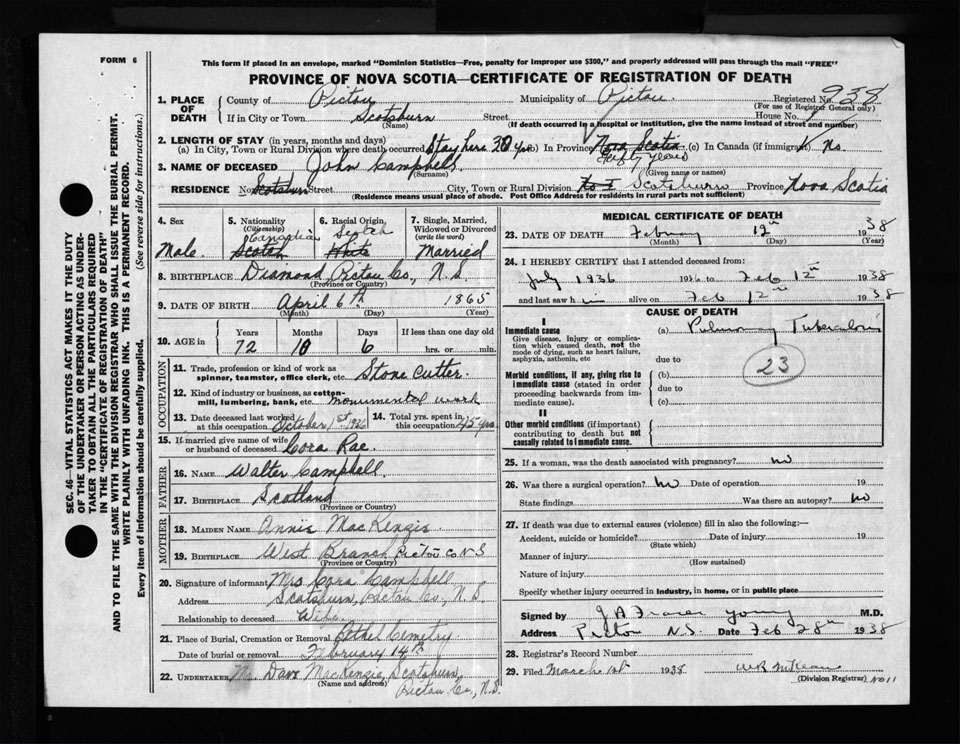 FORM 6
This form if placed in an envelope, marked "Dominion Statistics—Free, penalty for improper use $300," and properly addressed will pass through the mail "FREE"
PROVINCE OF NOVA SCOTIA—CERTIFICATE OF REGISTRATION OF DEATH
1. PLACE OF DEATH County of Pictou Municipality of Pictou Registered No. 938
(For use of Registrar General only)
If in City or Town Scotsburn Street House No.
(Name) (If death occurred in a hospital or institution, give the name instead of street and number)
2. LENGTH OF STAY (in years, months and days)
(a) In City, Town or Rural Division where death occurred Stay here 20 yrs (b) In Province Nova Scotia (c) In Canada (if immigrant) No.
Fifty years
3. NAME OF DECEASED John Campbell
(Surname) (Given name or names)
RESIDENCE No. Scotsburn Street City, Town or Rural Division No I Scotsburn Province Nova Scotia
(Residence means usual place of abode. Post Office Address for residents in rural parts not sufficient)
4. Sex 5. Nationality (Citizenship) 6. Racial Origin 7. Single, Married, Widowed or Divorced (write the word)
Canadian Scotch
Male Scotch White Married
8. BIRTHPLACE Diamond Pictou Co, N.S
(Province or Country)
9. DATE OF BIRTH April 6th 1865
(Month) (Day) (Year)
10. AGE in Years Months Days If less than one day old
72 10 6 hrs. or min.
OCCUPATION
11. Trade, profession or kind of work as spinner, teamster, office clerk, etc. Stone Cutter
12. Kind of industry or business, as cotton-mill, lumbering, bank, etc. monumental work
13. Date deceased last worked at this occupation October 1st 1926 14. Total yrs. spent in this occupation 45 yrs
15. If married give name of wife or husband of deceased Cora Rae
FATHER
16. NAME Walter Campbell
17. BIRTHPLACE Scotland
(Province or Country)
MOTHER
18. MAIDEN NAME Annie MacKenzie
19. BIRTHPLACE West Branch Pictou Co N S
(Province or Country)
20. Signature of informant Mrs Cora Campbell
Address Scotsburn, Pictou Co., N.S
Relationship to deceased Wife
21. Place of Burial, Cremation or Removal Bethel Cemetry
Date of burial or removal February 14th
22. UNDERTAKER Dave MacKenzie, Scotsburn,
(Name and address) Pictou Co., N.S.
MEDICAL CERTIFICATE OF DEATH
23. DATE OF DEATH February 12th 1938
(Month) (Day) (Year)
24. I HEREBY CERTIFY that I attended deceased from:
July 1936 1936 to Feb 12th 1938
and last saw him alive on Feb 12th 1938
CAUSE OF DEATH
I
Immediate cause (a) Pulmonary Tuberculosis
Give disease, injury or complication which caused death, not the mode of dying, such as heart failure, asphyxia, asthenia, etc
due to
23
Morbid conditions, if any, giving rise to immediate cause (stated in order proceeding backwards from immediate cause).
(b)
due to
(c)
II
Other morbid conditions (if important) contributing to death but not causally related to immediate cause.
25. If a woman, was the death associated with pregnancy? no
26. Was there a surgical operation? No Date of operation 19
State findings Was there an autopsy? No
27. If death was due to external causes (violence) fill in also the following:—
Accident, suicide or homicide? Date of injury 19
(State which)
Manner of injury
(How sustained)
Nature of injury
Specify whether injury occurred in industry, in home, or in public place
Signed by J A Fraser Young M.D.
Address Pictou N.S. Date Feb 28th 1938
28. Registrar's Record Number
29. Filed March 1st 1938
(Division Registrar) No 11
SEC. 46—VITAL STATISTICS ACT MAKES IT THE DUTY
OF THE UNDERTAKER OR PERSON ACTING AS UNDER-
TAKER TO OBTAIN ALL THE PARTICULARS REQUIRED
IN THE "CERTIFICATE OF REGISTRATION OF DEATH"
AND TO FILE THE SAME WITH THE DIVISION REGISTRAR WHO SHALL ISSUE THE BURIAL PERMIT.
WRITE PLAINLY WITH UNFADING INK. THIS IS A PERMANENT RECORD.
Every item of information should be carefully supplied. (See reverse side for instructions.)